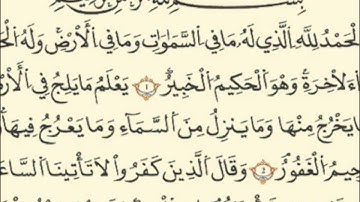 بِسْمِ ٱللَّهِ
ٱلْحَمْدُ لِلَّهِ ٱلَّذِي لَهُۥ مَا فِي ٱلسَّمَٰوَٰتِ وَمَا فِي ٱلْأَرْضِ وَلَهُ
ٱلْأٓخِرَةِۚ وَهُوَ ٱلْحَكِيمُ ٱلْخَبِيرُ ١ يَعْلَمُ مَا يَلِجُ فِي
يَخْرُجُ مِنْهَا وَمَا يَنزِلُ مِنَ ٱلسَّمَآءِ وَمَا يَعْرُجُ فِيهَاۚ
ٱلْغَفُورُ ٢ وَقَالَ ٱلَّذِينَ كَفَرُوا۟ لَا تَأْتِينَا